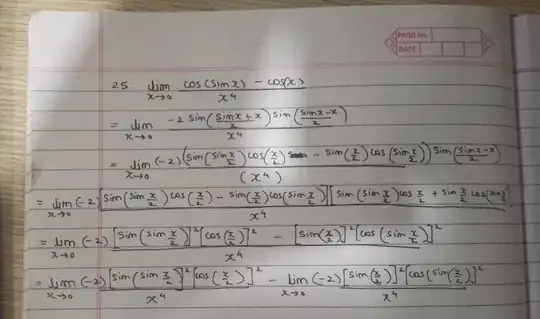 PAGE No.
DATE
25. lim x→0 cos(sin x) - cos(x) / x^4
= lim x→0 -2 sin((sin x + x)/2) sin((sin x - x)/2) / x^4
= lim x→0 (-2) (sin(sin x/2) cos(x/2) - sin(x/2) cos(sin x/2)) sin((sin x - x)/2) / (x^4)
= lim x→0 (-2) [sin(sin x/2) cos(x/2) - sin(x/2) cos(sin x/2)] [sin(sin x/2) cos x/2 + sin x/2 cos(sin x/2)] / x^4
= lim x→0 (-2) [sin(sin x/2)]^2 [cos(x/2)]^2 - [sin(x/2)]^2 [cos(sin x/2)]^2 / x^4
= lim x→0 (-2) [sin(sin x/2)]^2 [cos(x/2)]^2 / x^4 - lim x→0 (-2) [sin(x/2)]^2 [cos(sin x/2)]^2 / x^4